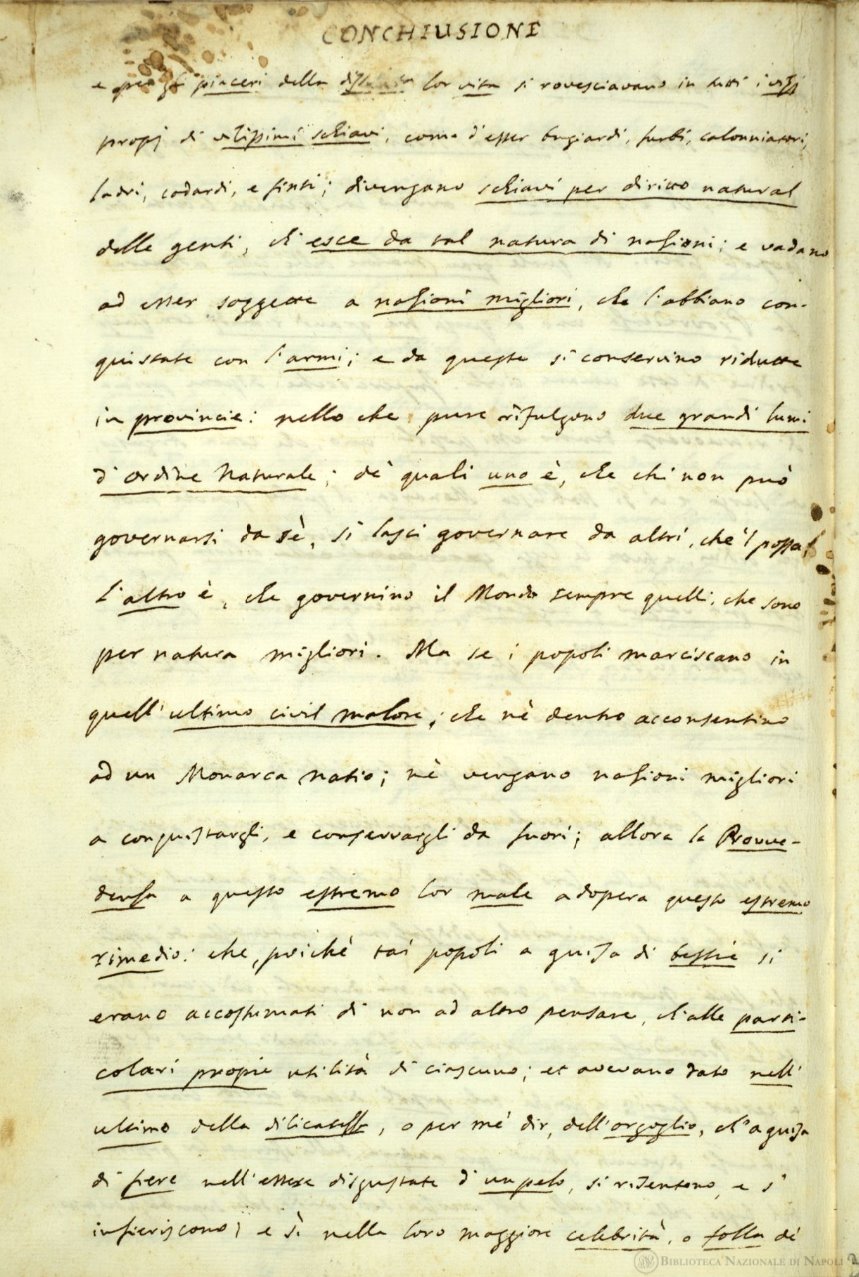 CONCHIUSIONE
e piaceri della lor vita si rovesciavano in tutti i vizj
propj di vilissimi schiavi, come d'esser bugiardi, furbi, calonniatori,
ladri, codardi, e finti; divengano schiavi per diritto natural
delle genti, ch'esce da tal natura di nazioni; e vadano
ad esser soggette a nazioni migliori, che l'abbiano con-
quistate con l'armi; e da queste si conservino ridutte
in provincie: nello che pure rifulgono due grandi lumi
d'ordine Naturale; de' quali uno è, che chi non può
governarsi da sè, si lasci governare da altri, che 'l possa;
l'altro è, che governino il Mondo sempre quelli, che sono
per natura migliori. Ma se i popoli marciscano in
quell'ultimo civil malore; che nè dentro acconsentino
ad un Monarca natio; nè vengano nazioni migliori
a conquistargli, e conservargli da fuori; allora la Provve-
denza a questo estremo lor male adopera questo estremo
rimedio: che, poichè tai popoli a guisa di bestie si
erano accostumati di non ad altro pensare, ch'alle parti-
colari propie utilità di ciascuno; et avevano dato nell'
ultimo della dilicatezza, o per me' dir, dell'orgoglio, ch'a guisa
di fiere nell'essere disgustate d'un pelo, si risentono, e s'
infieriscono; e sì nella loro maggiore celebrità, o folla de'
BIBLIOTECA NAZIONALE DI NAPOLI